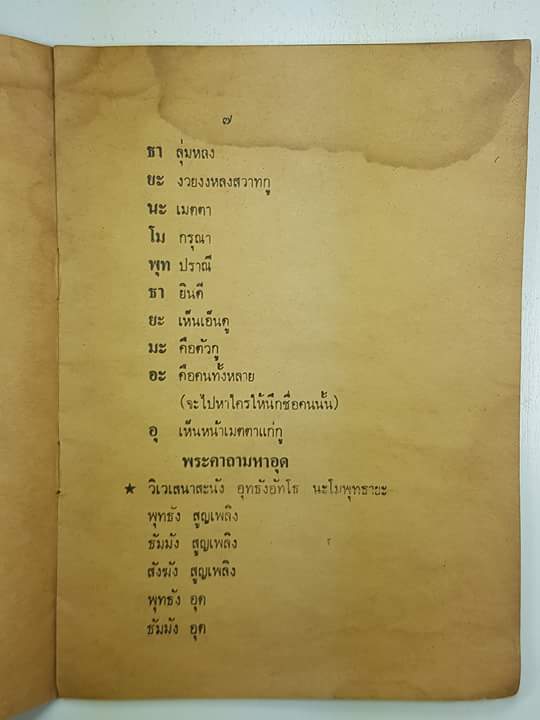 ๗
ธา ลุ่มหลง
ยะ งวยงงหลงสวาทกู
นะ เมตตา
โม กรุณา
พุท ปราณี
ธา ยินดี
ยะ เห็นเอ็นดู
มะ คือตัวกู
อะ คือคนทั้งหลาย
(จะไปหาใครให้นึกชื่อคนนั้น)
อุ เห็นหน้าเมตตาแก่กู
พระคาถามหาอุด
★ วิเวเสนาสะนัง อุทธังอัทโธ นะโมพุทธายะ
พุทธัง สูญเพลิง
ธัมมัง สูญเพลิง
สังฆัง สูญเพลิง
พุทธัง อุด
ธัมมัง อุด